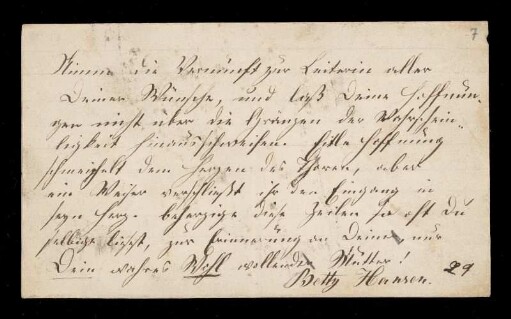 7
Nimm die Vernunft zur Leiterin aller
Deiner Wünsche, und laß Deine Hoffnun-
gen nicht über die Gränzen der Wahrschein-
lichkeit hinausschweifen. Eitle Hoffnung
schmeichelt dem Herzen des Thoren, aber
ein Weiser verschließt ihr den Eingang in
seyn Herz. beherzige diese Zeilen so oft Du
selbige liest, zur Erinnerung an Deine nur
Dein wahres Wohl wollende Mutter!
Betty Hansen.
29